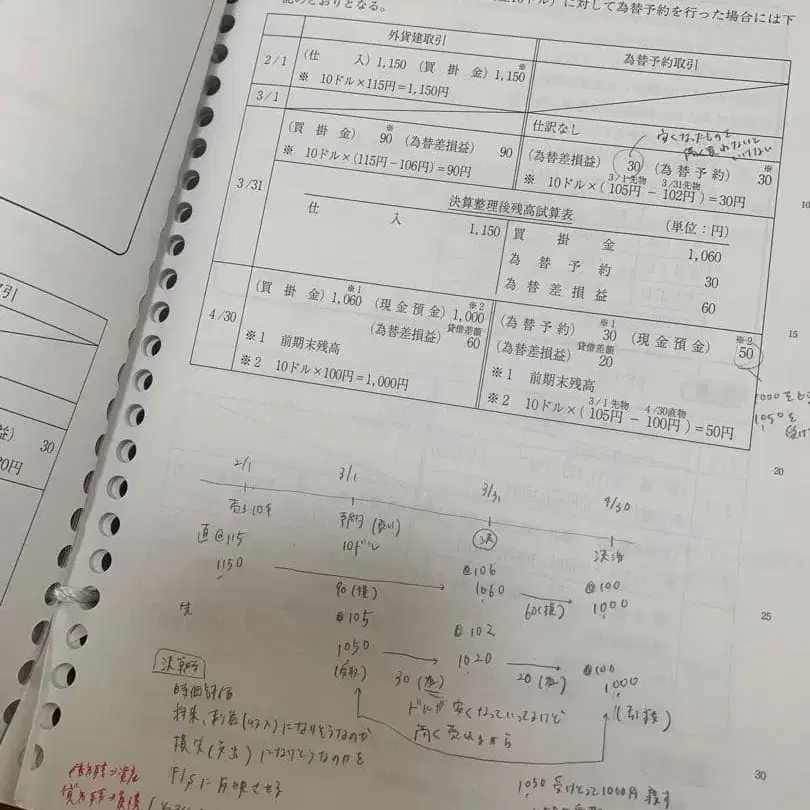 記のとおりとなる。
ドル）に対して為替予約を行った場合には下
外貨建取引
為替予約取引
2/1
(仕 入) 1,150 (買 掛 金) 1,150
※
※ 10ドル×115円＝1,150円
3/1
仕訳なし
安くなったものを
(買 掛 金) 90 (為替差損益) 90
※
※ 10ドル×(115円－106円)＝90円
(為替差損益) 30 (為替予約) 30
※
3/1先物 3/31先物
※ 10ドル×(105円－102円)＝30円
10
3/31
決算整理後残高試算表
(単位：円)
仕 入 1,150
買 掛 金 1,060
為 替 予 約 30
為 替 差 損 益 60
4/30
(買 掛 金) 1,060 (現金預金) 1,000
※1 ※2
(為替差損益) 60
貸借差額
※1 前期末残高
※2 10ドル×100円＝1,000円
(為替予約) 30 (現金預金) 50
※1 ※2
(為替差損益) 20
貸借差額
※1 前期末残高
3/1先物 4/30直物
※2 10ドル×(105円－100円)＝50円
15
1050を
20
引
益) 30
30円
2/1 3/1 3/31 4/30
予約
10ドル
決
決済
直@115
1150
@106
1060
@100
1000
90(損)
60(損)
先
@105
1050
@102
1020
@100
1000
30
20
25
決算時
時価評価
ドルが安くなっていってるけど
高く売れるから
将来、利益(収入)になりそうなのか
損失(支出)になりそうなのかを
F/Sに反映させる
1050受けとって1000円渡す
30